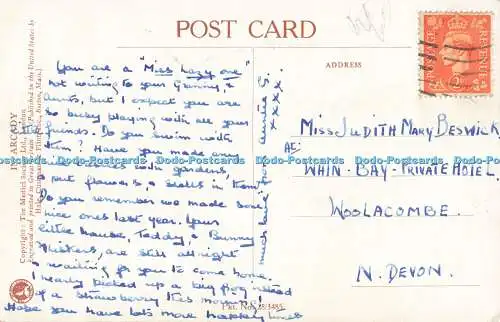 POST CARD
ADDRESS
POSTAGE
REVENUE
You are a "Miss Lazy one"
not writing to your Granny, &
Aunts, but I expect you are
so busy playing with all your
friends. Do you swim with
them? Have you made any
with gardens,
& put flowers, & shells in them
Do you remember we made some
nice ones last year. Your
little house, Teddy, & Bunny
Whiskers, are still allright
& waiting for you to come home.
I nearly picked up a big frog instead
of a strawberry this morning!
Hope you have lots more happy times
much love from auntie
xxxx
Miss Judith Mary Beswick
AT
WHIN-BAY-PRIVATE HOTEL.
WOOLACOMBE.
N. DEVON.
IN ARCADY
Copyright: The Medici Society Ltd., London
Engraved and printed in Great Britain. Published in the United States by
Hale, Cushman & Flint, Inc., Boston, Mass.
Pkt. No.
Dodo-Postcards Dodo-Postcards Dodo-Postcards Dodo-Postcards Dodo-Postcards